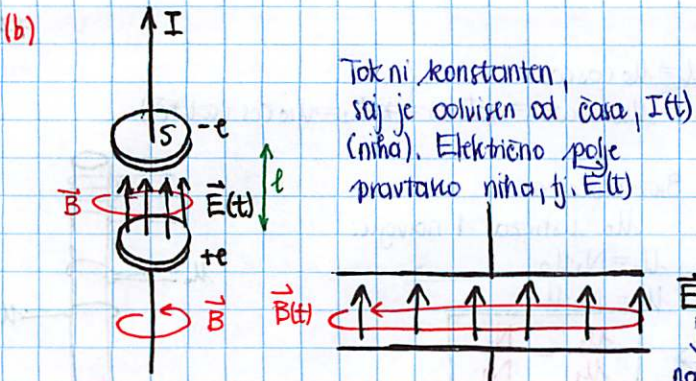 (b)
I
S -e
B E(t) l
+e
B
Tok ni konstanten,
saj je odvisen od časa, I(t)
(niha). Električno polje
pravtako niha, tj. E(t)
B(t)
E